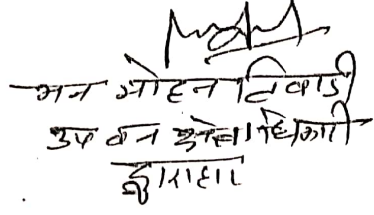 मन मोहन तिवाडी
उप वन क्षेत्राधिकारी
द्वाराहाट